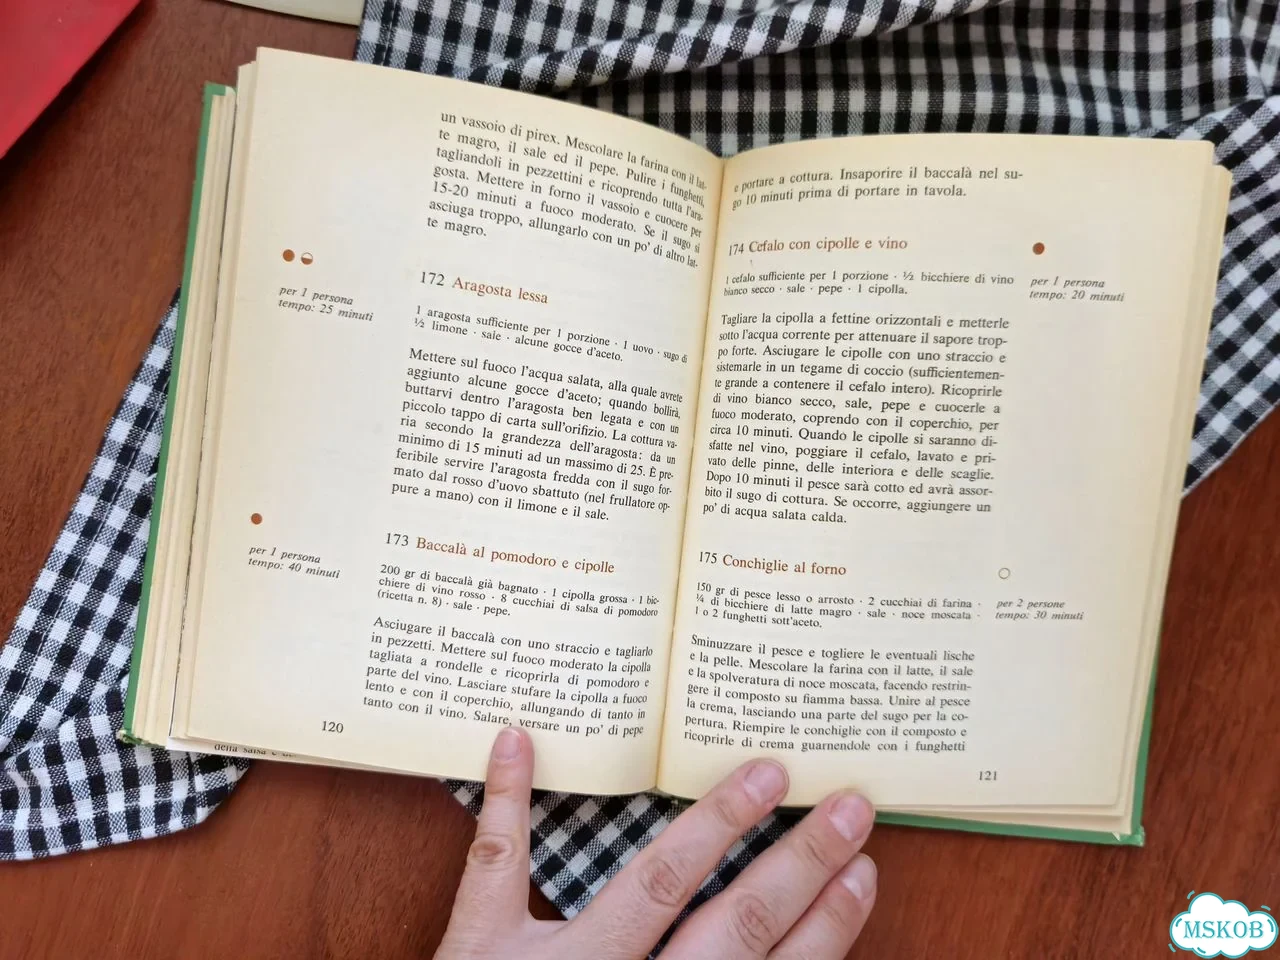 un vassoio di pirex. Mescolare la farina con il lat-
te magro, il sale ed il pepe. Pulire i funghetti,
tagliandoli in pezzettini e ricoprendo tutta l'ara-
gosta. Mettere in forno il vassoio e cuocere per
15-20 minuti a fuoco moderato. Se il sugo si
asciuga troppo, allungarlo con un po' di altro lat-
te magro.
172 Aragosta lessa
per 1 persona
tempo: 25 minuti
1 aragosta sufficiente per 1 porzione · 1 uovo · sugo di
½ limone · sale · alcune gocce d'aceto.
Mettere sul fuoco l'acqua salata, alla quale avrete
aggiunto alcune gocce d'aceto; quando bollirà,
buttarvi dentro l'aragosta ben legata e con un
piccolo tappo di carta sull'orifizio. La cottura va-
ria secondo la grandezza dell'aragosta: da un
minimo di 15 minuti ad un massimo di 25. È pre-
feribile servire l'aragosta fredda con il sugo for-
mato dal rosso d'uovo sbattuto (nel frullatore op-
pure a mano) con il limone e il sale.
173 Baccalà al pomodoro e cipolle
per 1 persona
tempo: 40 minuti
200 gr di baccalà già bagnato · 1 cipolla grossa · 1 bic-
chiere di vino rosso · 8 cucchiai di salsa di pomodoro
(ricetta n. 8) · sale · pepe.
Asciugare il baccalà con uno straccio e tagliarlo
in pezzetti. Mettere sul fuoco moderato la cipolla
tagliata a rondelle e ricoprirla di pomodoro e
parte del vino. Lasciare stufare la cipolla a fuoco
lento e con il coperchio, allungando di tanto in
tanto con il vino. Salare, versare un po' di pepe
120
della salsa e
e portare a cottura. Insaporire il baccalà nel su-
go 10 minuti prima di portare in tavola.
174 Cefalo con cipolle e vino
per 1 persona
tempo: 20 minuti
1 cefalo sufficiente per 1 porzione · ½ bicchiere di vino
bianco secco · sale · pepe · 1 cipolla.
Tagliare la cipolla a fettine orizzontali e metterle
sotto l'acqua corrente per attenuare il sapore trop-
po forte. Asciugare le cipolle con uno straccio e
sistemarle in un tegame di coccio (sufficientemen-
te grande a contenere il cefalo intero). Ricoprirle
di vino bianco secco, sale, pepe e cuocerle a
fuoco moderato, coprendo con il coperchio, per
circa 10 minuti. Quando le cipolle si saranno di-
sfatte nel vino, poggiare il cefalo, lavato e pri-
vato delle pinne, delle interiora e delle scaglie.
Dopo 10 minuti il pesce sarà cotto ed avrà assor-
bito il sugo di cottura. Se occorre, aggiungere un
po' di acqua salata calda.
175 Conchiglie al forno
per 2 persone
tempo: 30 minuti
150 gr di pesce lesso o arrosto · 2 cucchiai di farina ·
¼ di bicchiere di latte magro · sale · noce moscata ·
1 o 2 funghetti sott'aceto.
Sminuzzare il pesce e togliere le eventuali lische
e la pelle. Mescolare la farina con il latte, il sale
e la spolveratura di noce moscata, facendo restrin-
gere il composto su fiamma bassa. Unire al pesce
la crema, lasciando una parte del sugo per la co-
pertura. Riempire le conchiglie con il composto e
ricoprirle di crema guarnendole con i funghetti
121
MSKOB